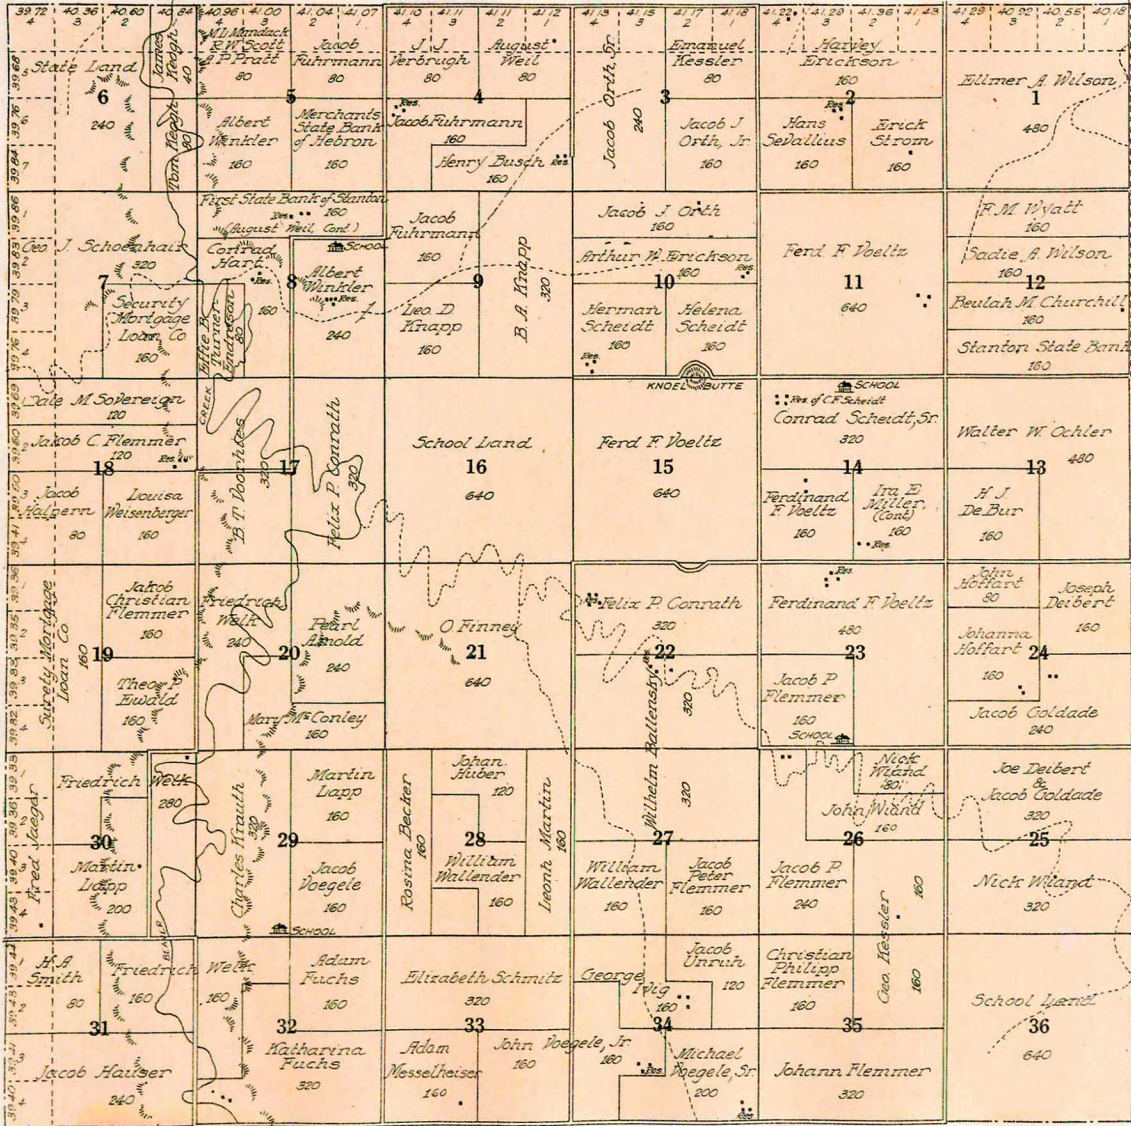 39.72 40.36 40.60 40.84 40.96 41.00 41.04 41.07 41.10 41.11 41.11 41.12 41.13 41.15 41.17 41.18 41.22 41.29 41.36 41.43 41.29 40.92 40.55 40.18
4 3 2 1 4 3 2 1 4 3 2 1 4 3 2 1 4 3 2 1 4 3 2 1
39.68
5
39.76
6
39.84
7
State Land
6
240
James
Keogh
40
Tom Keogh
80
M.L. Mandack
R.W. Scott
A P Pratt
80
Jacob
Fuhrmann
80
5
Albert
Winkler
160
Merchants
State Bank
of Hebron
160
J J
Verbrugh
80
August
Weil
80
4
Res.
Jacob Fuhrmann
160
Henry Busch
Res
160
Jacob Orth, Sr.
240
Emanuel
Kessler
80
3
Jacob J
Orth, Jr.
160
Harvey
Erickson
160
Res
2
Hans
Sevallius
160
Erick
Strom
160
Ellmer A. Wilson
1
480
39.86
1
39.83
2
39.79
3
39.76
4
Geo J. Schoenhair
320
7
Security
Mortgage
Loan Co
160
First State Bank of Stanton
Res. 160
(August Weil, Cont)
Conrad
Hart
Res.
160
Effie B.
Turner
Endreson
80
8
SCHOOL
Albert
Winkler
Res.
240
Jacob
Fuhrmann
160
9
Geo. D
Knapp
160
B. A. Knapp
320
Jacob J. Orth
160
Arthur W. Erickson
160
Res
10
Herman
Scheidt
160
Res.
Helena
Scheidt
160
Ferd F Voeltz
11
640
F. M. Wyatt
160
Sadie A. Wilson
160
12
Beulah M Churchill
160
Stanton State Bank
160
KNOEL BUTTE
39.69
1
39.60
2
39.50
3
39.41
4
Dale M Sovereign
120
Jakob C. Flemmer
120
Res.
18
Jacob
Halpern
80
Louisa
Weisenberger
160
CREEK
B T. Voorhies
320
17
Felix P. Conrath
320
School Land
16
640
Ferd F. Voeltz
15
640
SCHOOL
Res. of C.F. Scheidt
Conrad Scheidt, Sr.
320
14
Ferdinand
F. Voeltz
160
Ira E
Miller,
(Cont)
160
Res.
Walter W. Ochler
480
13
H J.
De Bur
160
39.36
1
39.35
2
39.33
3
39.32
4
Surety Mortgage
Loan Co.
160
Jakob
Christian
Flemmer
160
19
Theo. P
Ewald
160
Friedrich
Welk
240
20
Pearl
Arnold
240
Mary McConley
160
O Finney
21
640
Res.
Felix P. Conrath
320
22
Res.
Wilhelm Ballensky
320
320
Res
Ferdinand F Voeltz
480
23
Jacob P
Flemmer
160
SCHOOL
John
Hoffart
80
Joseph
Deibert
160
Johanna
Hoffart
160
24
Jacob Goldade
240
39.33
1
39.36
2
39.40
3
39.43
4
Fred Jaeger
Friedrich Welk
280
30
Martin
Lapp
200
BEAVER
Charles Krauth
320
29
Martin
Lapp
160
Jacob
Voegele
160
SCHOOL
Rosina Becker
160
Johan
Huber
120
28
William
Wallender
160
Leonh Martin
160
27
William
Wallender
160
Jacob
Peter
Flemmer
160
Nick
Wiand
80
John Wiand
160
26
Jacob P
Flemmer
240
Geo. Kessler
160
160
Joe Deibert
&
Jacob Goldade
320
25
Nick Wiand
320
39.44
1
39.43
2
39.41
3
39.40
4
H. A.
Smith
80
Friedrich Welk
160
160
31
Jacob Hauser
240
Adam
Fuchs
160
32
Katharina
Fuchs
320
Elizabeth Schmitz
320
33
Adam
Messelheiser
160
John Voegele, Jr
160
160
George
Ivig
160
Jacob
Unruh
120
34
Michael
Voegele, Sr.
200
Res.
Res.
Christian
Philipp
Flemmer
160
35
Johann Flemmer
320
School Land
36
640